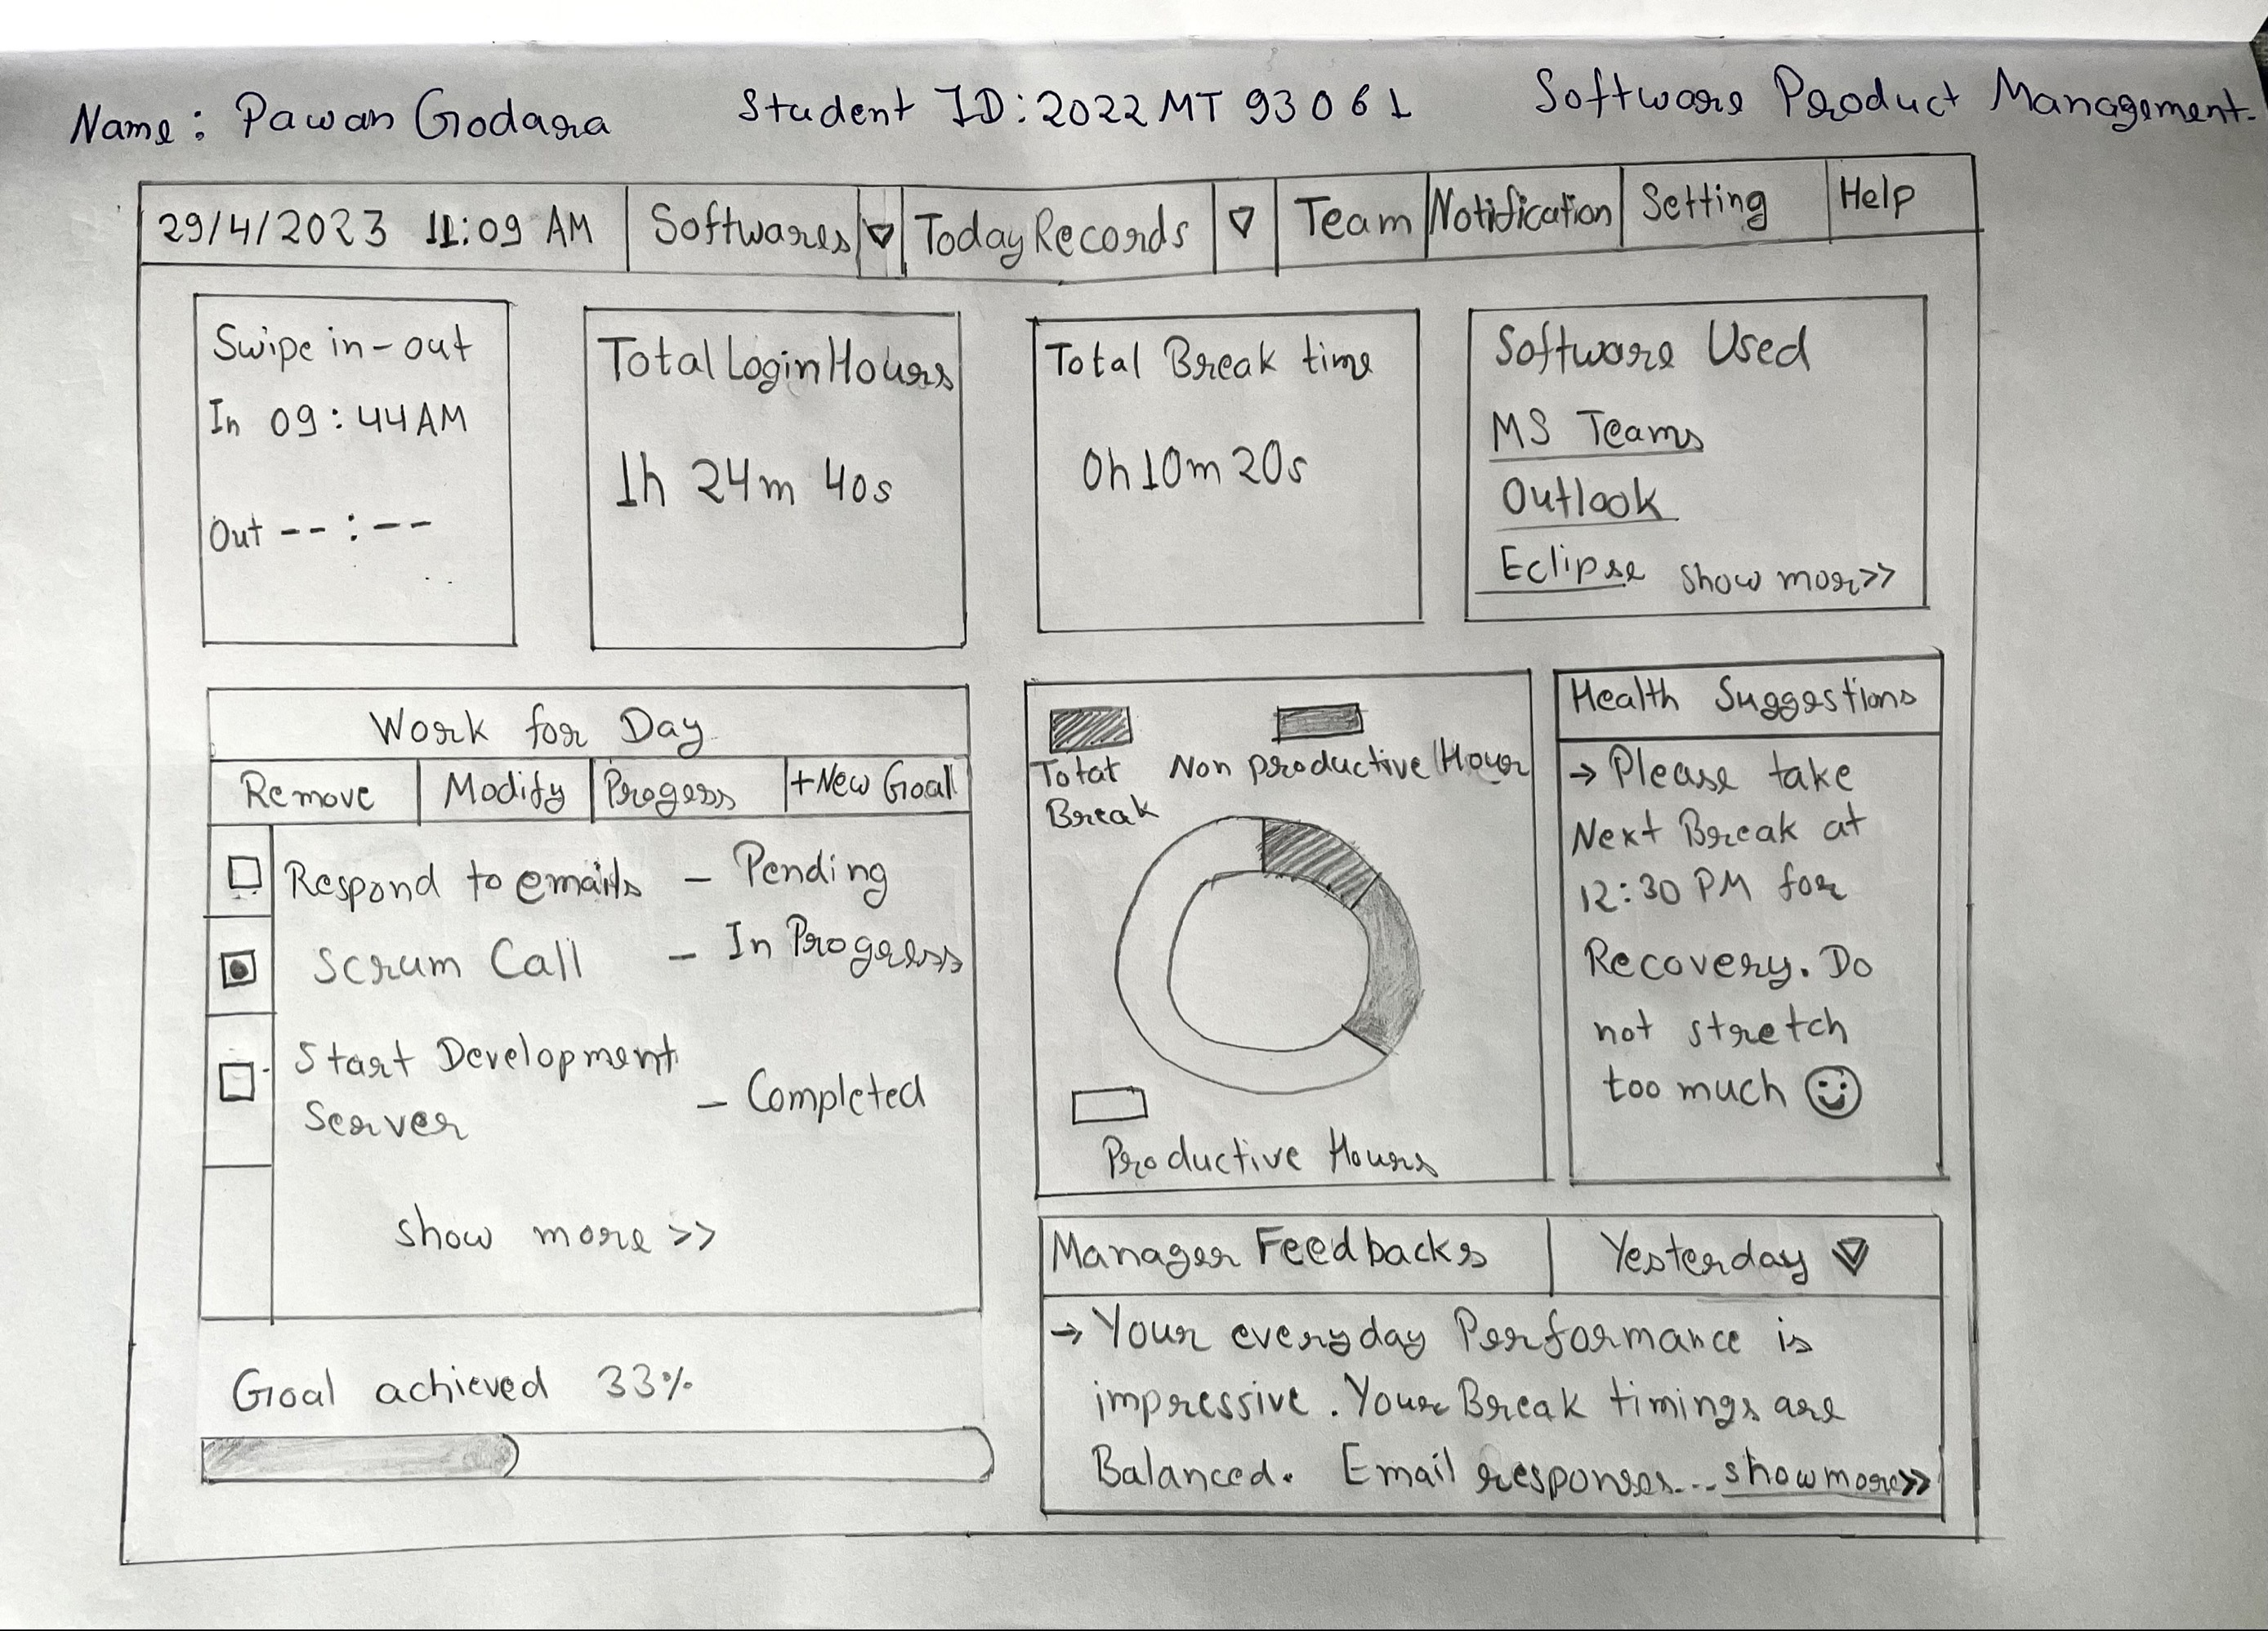 Name: Pawan Godara Student ID: 2022MT93061 Software Product Management.
29/4/2023 11:09 AM Softwares Today Records Team Notification Setting Help
Swipe in-out
In 09:44AM
Out --:--
Total Login Hours
1h 24m 40s
Total Break time
0h 10m 20s
Software Used
MS Teams
Outlook
Eclipse show more>>
Work for Day
Remove Modify Progess +New Goal
Respond to emails - Pending
Scrum Call - In Progress
Start Development
Server - Completed
show more >>
Goal achieved 33%
Total
Break
Non productive Hour
Productive Hours
Health Suggestions
→ Please take
Next Break at
12:30 PM for
Recovery. Do
not stretch
too much
Manager Feedbacks Yesterday
→ Your everyday Performance is
impressive. Your Break timings are
Balanced. Email responses... show more>>